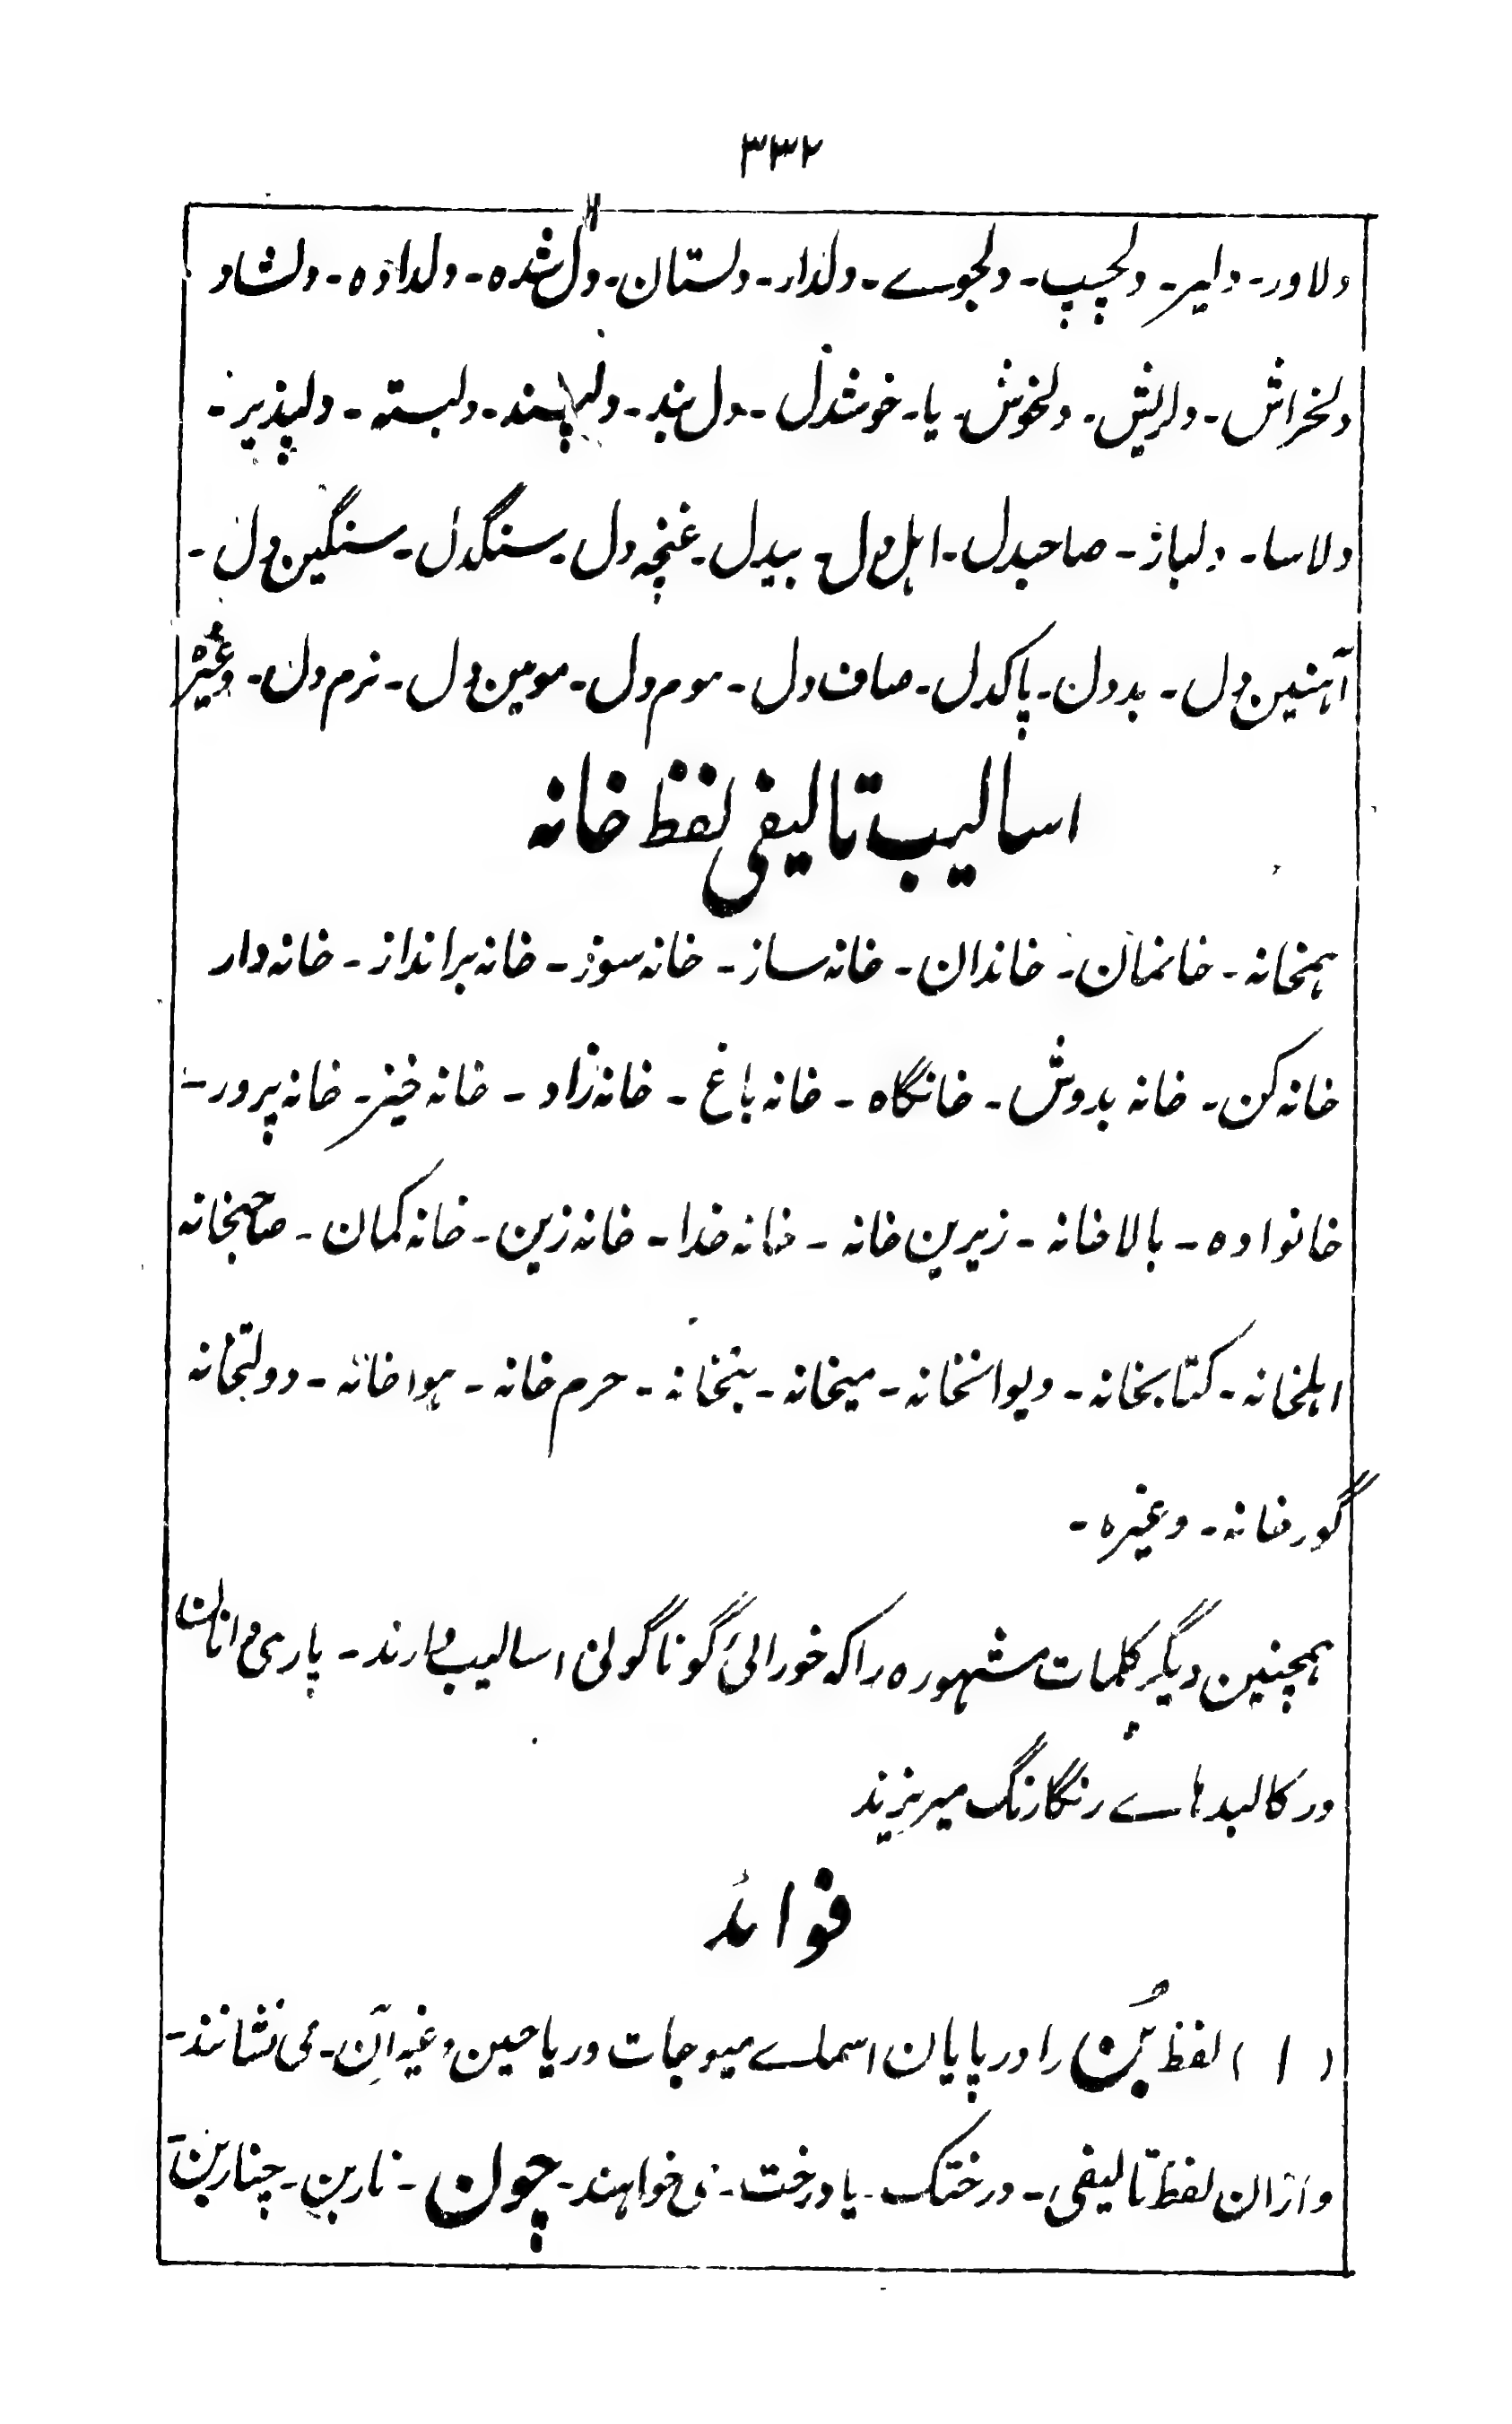 ۳۳۲
دلاور - دلیر - دلچسپ - دلجوے - دلدار - دلستان - دل شده - دلداده - دلشاد
دلخراش - دلریش - دلخوش - یا - خوشدل - دل بند - دلپسند - دلبسته - دلپذیر -
دلاسا - دلباز - صاحبدل - اہل دل - بیدل - غنچه دل - سنگدل - سنگین دل -
آہنین دل - بددل - پاکدل - صاف دل - موم دل - مومین دل - نرم دل - وغیره
اسالیب تالیفی لفظ خانه
ہمخانه - خانمان - خاندان - خانه ساز - خانه سوز - خانه برانداز - خانه دار
خانه کن - خانه بدوش - خانگاه - خانه باغ - خانه زاد - خانه خیز - خانه پرور -
خانواده - بالاخانه - زیرین خانه - خانه خدا - خانه زین - خانه کمان - صاحبخانه
اہلخانه - کتابخانه - دیوانخانه - میخانه - بتخانه - حرم خانه - ہوا خانه - دولتخانه
گورخانه - وغیره -
ہمچنین دیگر کلمات مشہوره را که خورائ گوناگون اسالیب دارند - پارسی دانان
در کالبدہاے رنگارنگ میریزند
فوائد
(۱) لفظ بُن را در پایان اسماے میوجات و ریاحین وغیر آن - می نشانند -
و ازان لفظ تالیفی - درختک - یا درخت - می خواہند - چون - نار بن - چنار بن -